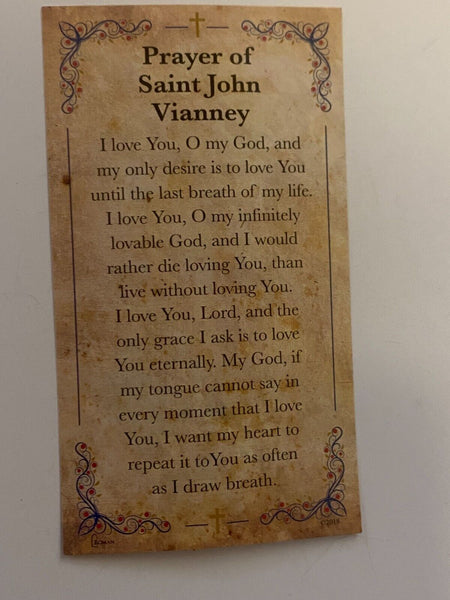 Prayer of
Saint John
Vianney
I love You, O my God, and
my only desire is to love You
until the last breath of my life.
I love You, O my infinitely
lovable God, and I would
rather die loving You, than
live without loving You.
I love You, Lord, and the
only grace I ask is to love
You eternally. My God, if
my tongue cannot say in
every moment that I love
You, I want my heart to
repeat it to You as often
as I draw breath.
ROMAN